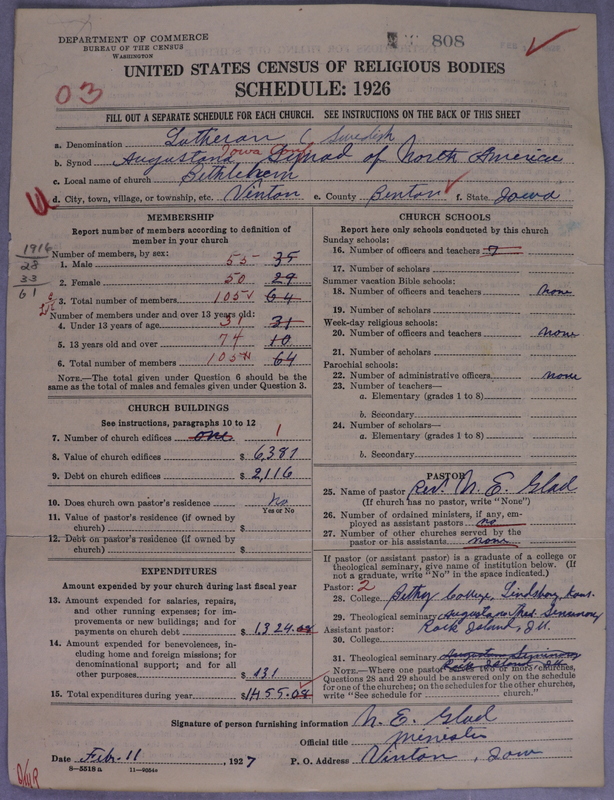 DEPARTMENT OF COMMERCE
BUREAU OF THE CENSUS
WASHINGTON
808
UNITED STATES CENSUS OF RELIGIOUS BODIES
SCHEDULE: 1926
03
FILL OUT A SEPARATE SCHEDULE FOR EACH CHURCH. SEE INSTRUCTIONS ON THE BACK OF THIS SHEET
a. Denomination Lutheran (Swedish
b. Synod Augustana Synod of North America
Iowa Conf
c. Local name of church Bethlehem
d. City, town, village, or township, etc. Vinton e. County Benton f. State Iowa
MEMBERSHIP
Report number of members according to definition of
member in your church
1916
28
33
61
Number of members, by sex:
1. Male 55 35
2. Female 50 29
3. Total number of members 105 64
Number of members under and over 13 years old:
4. Under 13 years of age 31 31
5. 13 years old and over 74 10
6. Total number of members 105 64
NOTE.—The total given under Question 6 should be the
same as the total of males and females given under Question 3.
CHURCH BUILDINGS
See instructions, paragraphs 10 to 12
7. Number of church edifices one 1
8. Value of church edifices $ 6,387
9. Debt on church edifices $ 2,116
10. Does church own pastor's residence No
Yes or No
11. Value of pastor's residence (if owned by
church) $
12. Debt on pastor's residence (if owned by
church) $
EXPENDITURES
Amount expended by your church during last fiscal year
13. Amount expended for salaries, repairs,
and other running expenses; for im-
provements or new buildings; and for
payments on church debt $ 1,324.08
14. Amount expended for benevolences, in-
cluding home and foreign missions; for
denominational support; and for all
other purposes $ 131
15. Total expenditures during year $ 1455.08
CHURCH SCHOOLS
Report here only schools conducted by this church
Sunday schools:
16. Number of officers and teachers 7
17. Number of scholars
Summer vacation Bible schools:
18. Number of officers and teachers none
19. Number of scholars
Week-day religious schools:
20. Number of officers and teachers none
21. Number of scholars
Parochial schools:
22. Number of administrative officers none
23. Number of teachers—
a. Elementary (grades 1 to 8)
b. Secondary
24. Number of scholars—
a. Elementary (grades 1 to 8)
b. Secondary
PASTOR
25. Name of pastor Rev. N. E. Glad
(If church has no pastor, write "None")
26. Number of ordained ministers, if any, em-
ployed as assistant pastors no
27. Number of other churches served by the
pastor or his assistants none
If pastor (or assistant pastor) is a graduate of a college or
theological seminary, give name of institution below. (If
not a graduate, write "No" in the space indicated.)
Pastor: 2
28. College Bethany College, Lindsborg, Kans.
29. Theological seminary Augustana Theol. Seminary
Assistant pastor: Rock Island, Ill.
30. College
31. Theological seminary Augustana Seminary
Rock Island, Ill.
NOTE.—Where one pastor serves two or more churches,
Questions 28 and 29 should be answered only on the schedule
for one of the churches; on the schedules for the other churches,
write "See schedule for church."
Signature of person furnishing information N. E. Glad
Official title Minister
Date Feb. 11, 1927 P. O. Address Vinton, Iowa
8—5518 a 11—9084